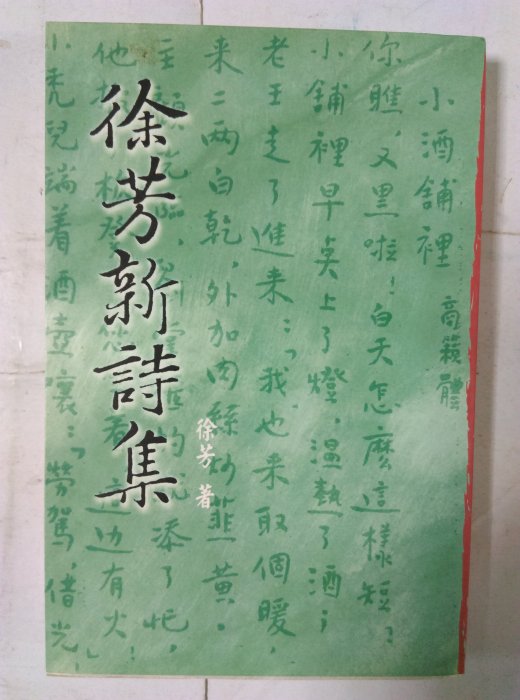 徐芳新詩集
徐芳 著
小酒舖裡 商籟體
你瞧,又黑啦!白天怎麼這樣短;
小舖裡早奌上了燈,温熱了酒;
老王走了進来:「我也来取個暖,
来二两白乾,外加肉絲炒韮黄。
主顧 添了忙,
他 边有火!」
小禿兒端着酒壺嚷:「勞駕,借光,